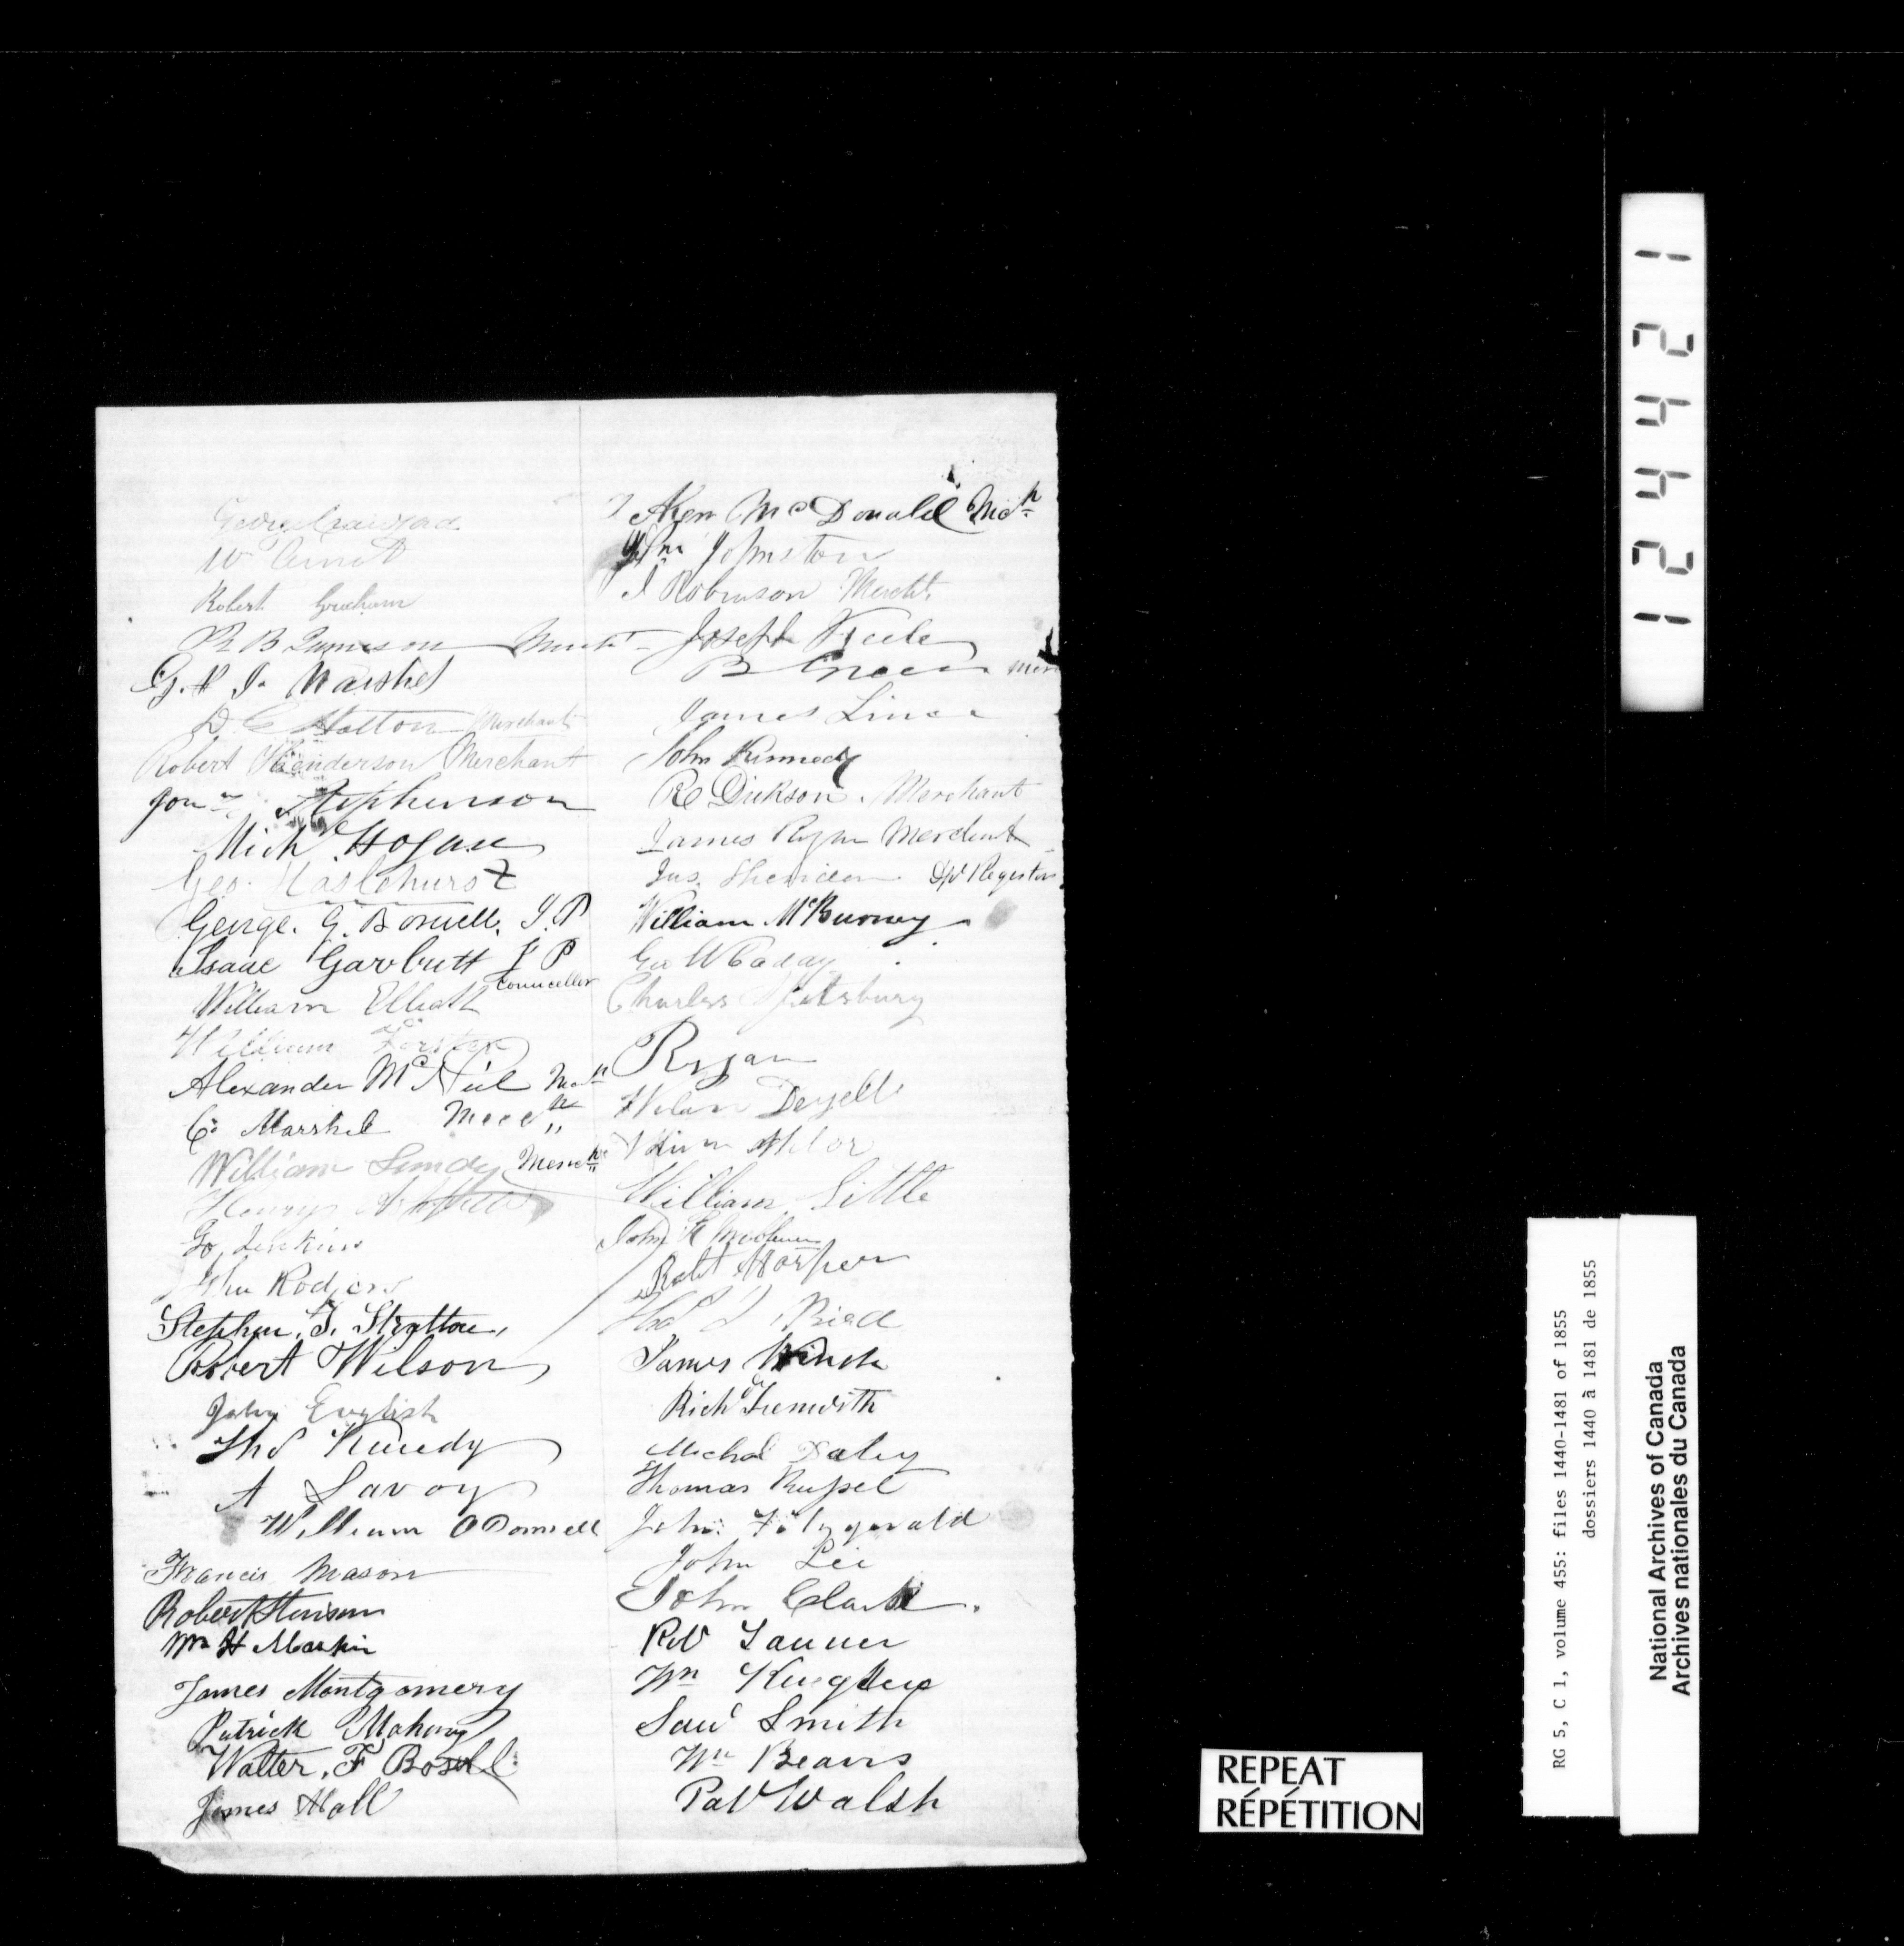 George Crawford
W Arnot
Robert Graham
R B Jameson Mercht
G. H J. Marshel
D C Hatton Merchant
Robert Henderson Merchant
Stephenson
Mich Hogan
Geo. Haslehurst
George. G. Boswell. J. P
Isaac Garbutt J P
William Elliott Councellor
William Forster
Alexander McNeil
C. Marshel
William Lundy Merch
Henry
Jenkins
John Rodgers
Stephen. T. Stratton,
Robert Wilson
John English
Thos Kenedy
A Savoy
William ODonnell
Francis Mason
Robert Stenson
Wm H Markin
James Montgomery
Patrick Mahony
Walter. F Boswell
James Hall
McDonald
Wm Johnston
J Robinson Mercht
Joseph
B
James
John Kinnedy
Dickson. Merchant
James Ryan Merchant
Jas. Sheriden
William McBurney
Geo W Caday
Charles
Ryan
Deyell
William Little
John
Robt Harper
Thos
James
Richd Trenwith
Michal Daley
Thomas Russel
John Fitzgerald
John Lee
John Clark.
Tanner
Wm
Saml Smith
Wm Beans
Pat Walsh
124421
RG 5, C 1, volume 455: files 1440-1481 of 1855
dossiers 1440 à 1481 de 1855
National Archives of Canada
Archives nationales du Canada
REPEAT
RÉPÉTITION